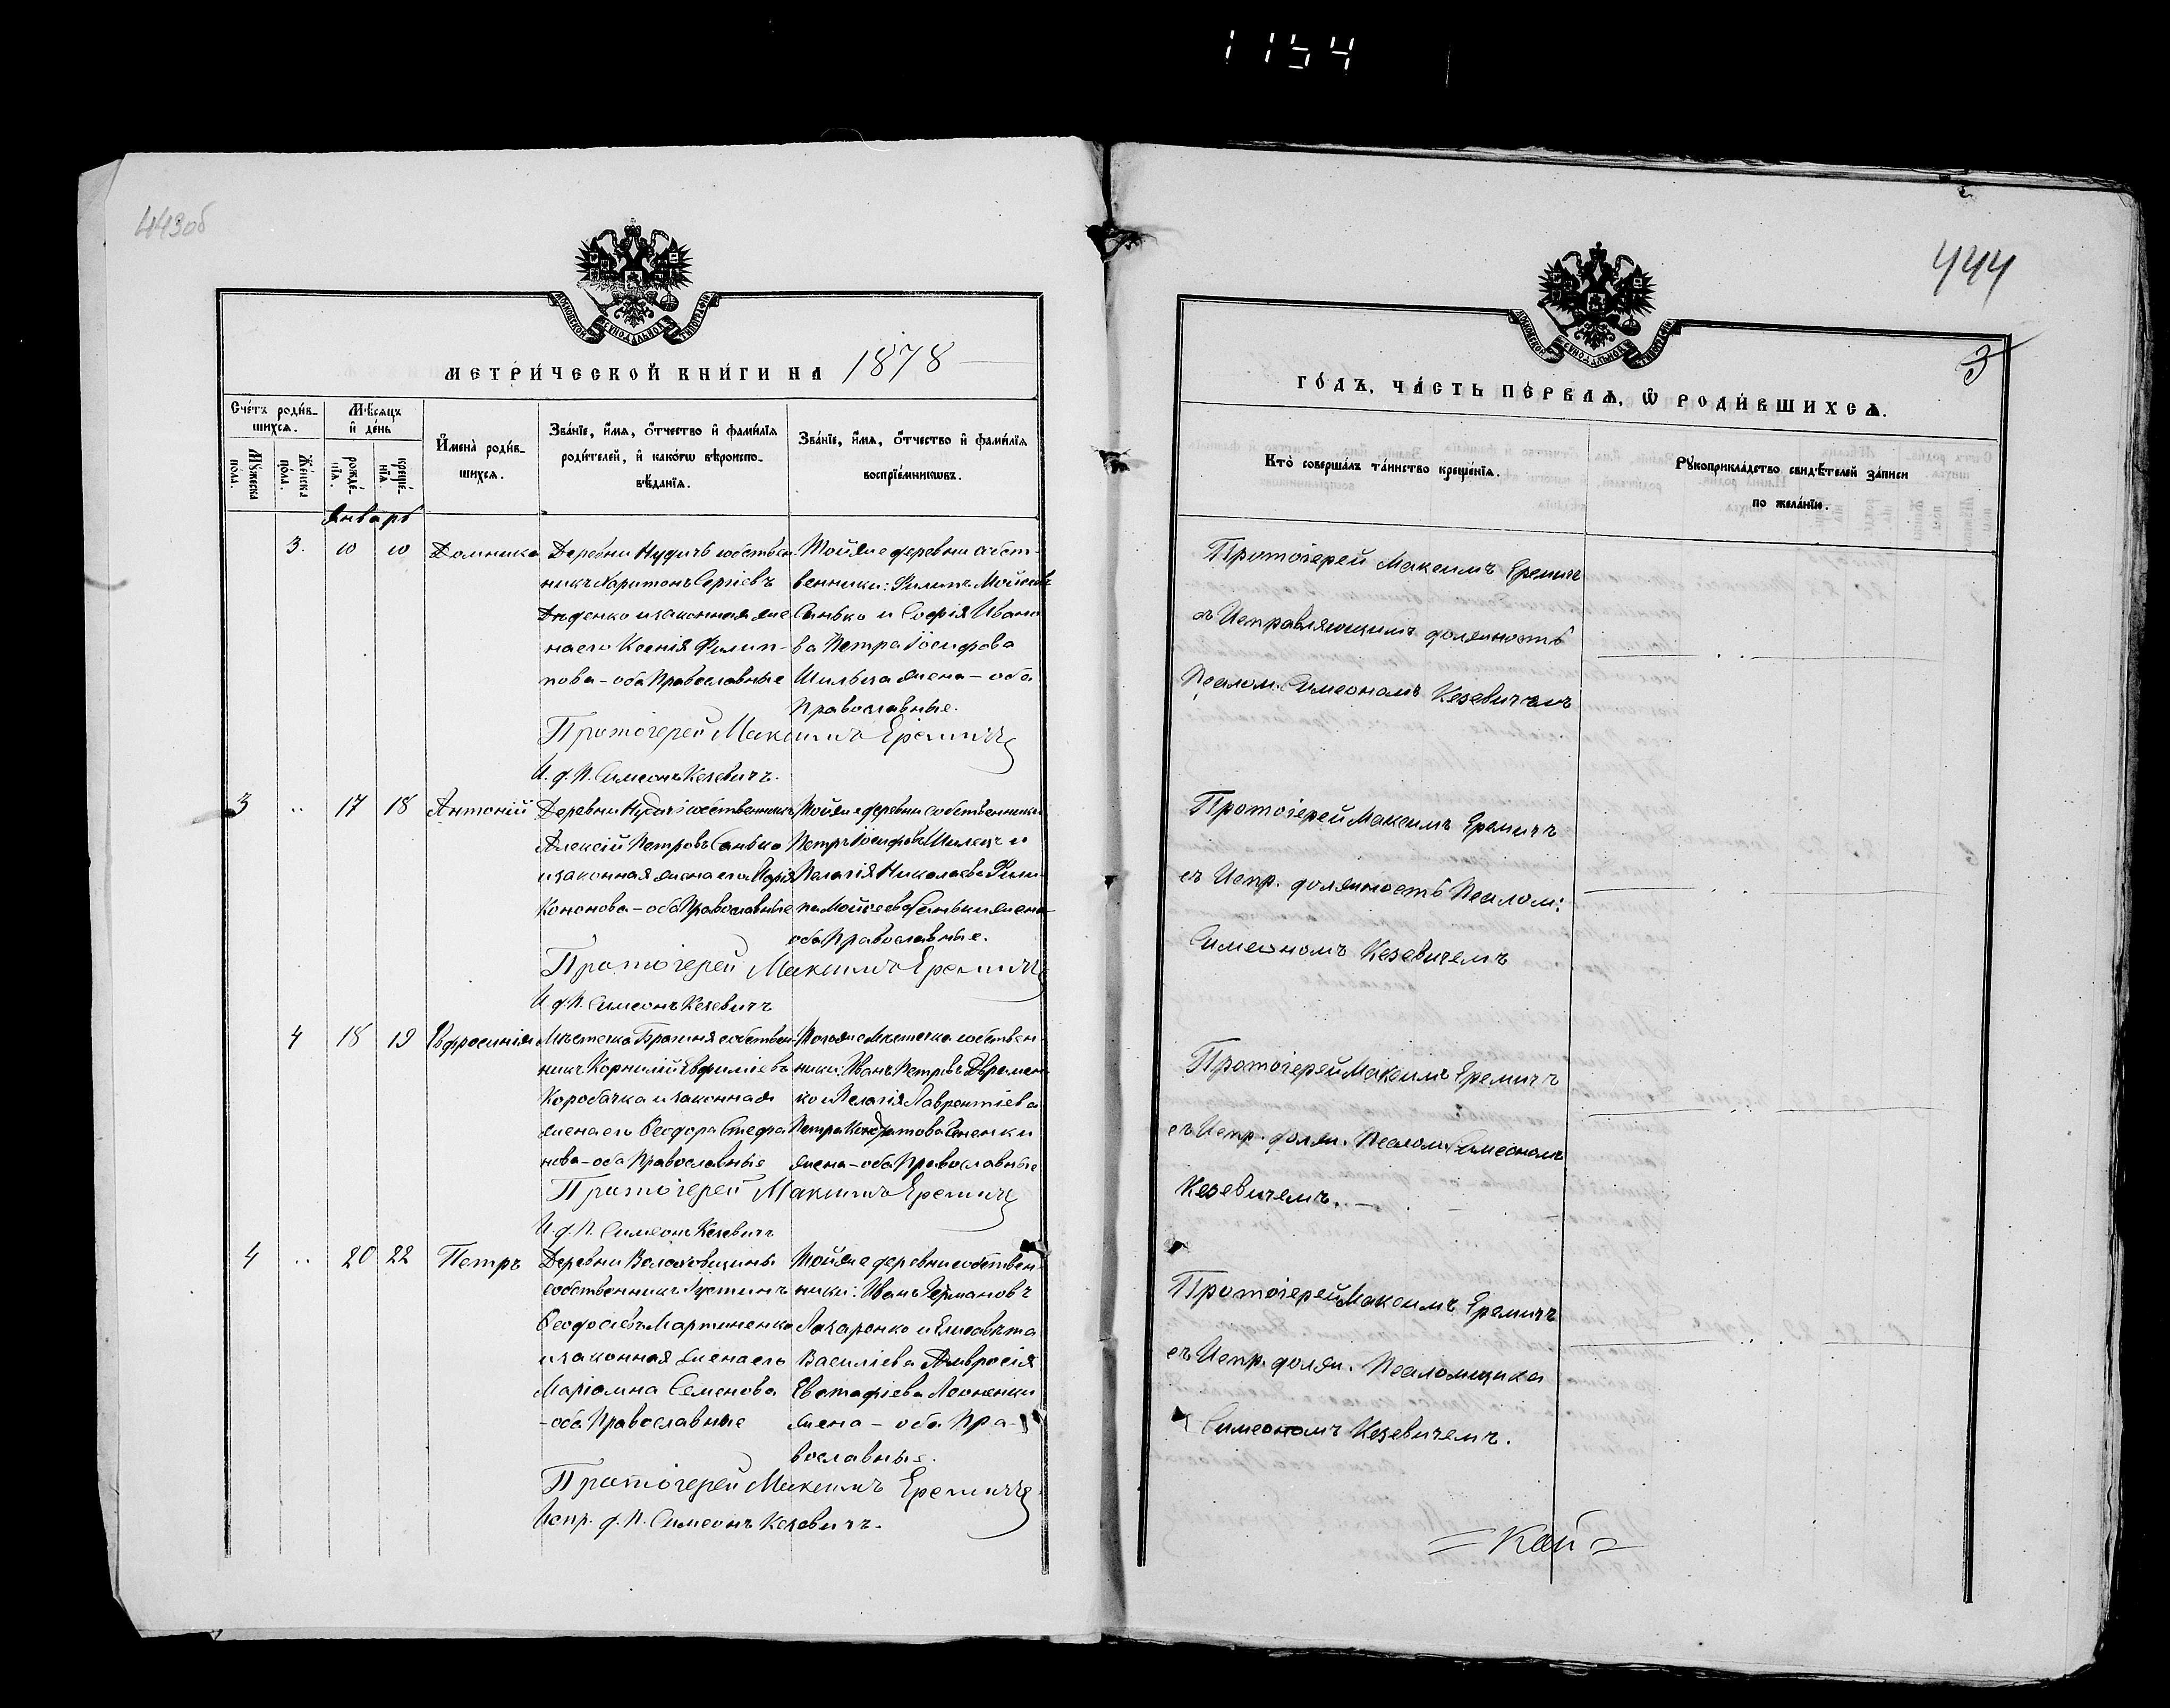 1154
443об
444
3
МЕТРИ́ЧЕСКОЙ КНИ́ГИ НА 1878
Сче́тъ роди́в-
шихсѧ.
Мѣ́сяцъ
и҆ де́нь
И҆мена̀ роди́в-
шихсѧ.
Зва́нїе, и҆́мѧ, ѻ҆́тчество и҆ фами́лїѧ
роди́телей, и҆ како́гѡ вѣроиспо-
вѣ́данїѧ.
Зва́нїе, и҆́мѧ, ѻ҆́тчество и҆ фами́лїѧ
воспрїе́мникѡвъ.
Мꙋ́жеска
по́ла.
Же́нска
по́ла.
рожде́-
нїѧ.
креще́-
нїѧ.
Январь
3. 10 10 Домника
Деревни Нудичъ собствен-
никъ Харитонъ Сергіевъ
Диденко и законная же-
на его Ксенія Филип-
пова – оба Православные
Тойже деревни собст-
венники: Филипъ Мойсеевъ
Санько и Софія Ивано-
ва Петра Іосифова
Шильца жена – оба
Православные.
Протоіерей Максимъ Еремичъ
И. д. П. Симеонъ Кезевичъ.
3 .. 17 18 Антоній
Деревни Нудичъ собственникъ
Алексій Петровъ Санько
и законная жена его Марія
Кононова – оба Православные
Тойже деревни собственники
Петръ Іосифовъ Шилецъ и
Пелагія Николаева Фили-
па Мойсеева Саньки жена
оба Православные.
Протоіерей Максимъ Еремичъ
И. д. П. Симеонъ Кезевичъ
4 18 19 Евфросинія
Мѣстечка Брагиня собствен-
никъ Корнилій Евфиміевъ
Коробачка и законная
жена его Феодора Стефа-
нова – оба Православные
Тогоже Мѣстечка собствен-
ники: Иванъ Петровъ
ко и Пелагія Лаврентіева
Петра Кондратова
жена – оба Православные
Протоіерей Максимъ Еремичъ
И. д. П. Симеонъ Кезевичъ
4 .. 20 22 Петръ
Деревни Волоховщины
собственникъ Іустинъ
Феодосіевъ Мартиненко
и законная жена его
Маріамна Семенова
– оба Православные
Тойже деревни собствен-
ники: Иванъ Германовъ
Лазаренко и Елисавета
Василіева Амвросія
Евстафіева Леоненки
жена – оба Пра-
вославные.
Протоіерей Максимъ Еремичъ
Испр. д. П. Симеонъ Кезевичъ.
ГО́ДЪ, ЧА́СТЬ ПЕ́РВАѦ, Ѡ҆ РОДИ́ВШИХСѦ.
Кто̀ соверша́лъ та́инство креще́нїѧ.
Рꙋкоприкла́дство свидѣ́телей за́писи
по жела́нїю.
Протоіерей Максимъ Еремичъ
съ Исправляющимъ должность
Псалом. Симеономъ Кезевичемъ
Протоіерей Максимъ Еремичъ
съ Испр. должность Псалом:
Симеономъ Кезевичемъ
Протоіерей Максимъ Еремичъ
съ Испр. долж. Псалом. Симеономъ
Кезевичемъ. –
Протоіерей Максимъ Еремичъ
съ Испр. долж. Псаломщика
Симеономъ Кезевичемъ.
= Кой =